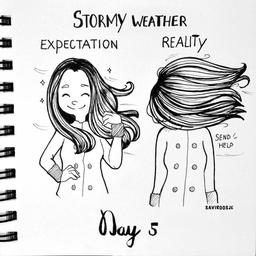 STORMY WEATHER
EXPECTATION
REALITY
SEND
HELP
Day 5